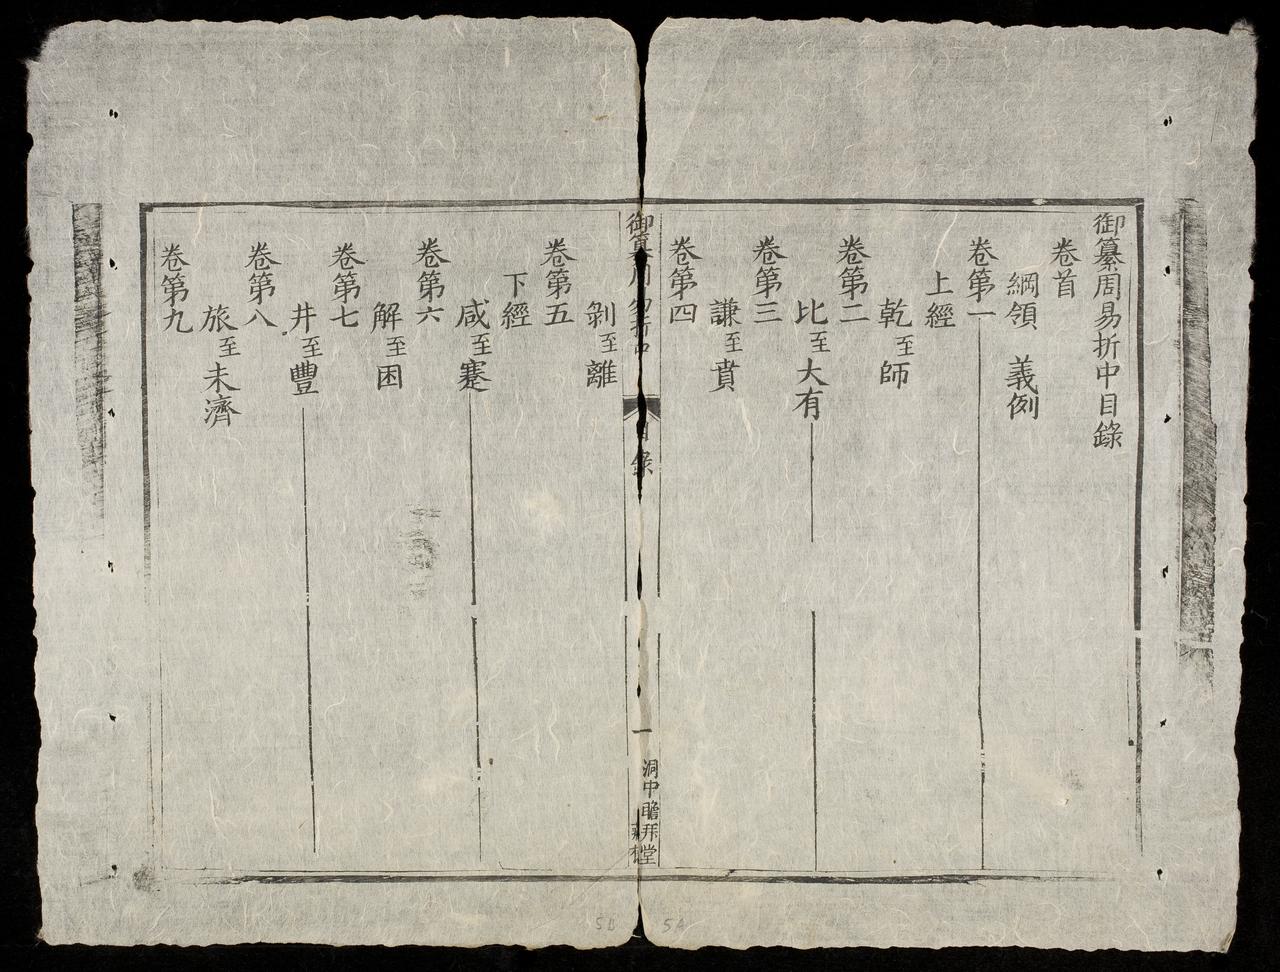 御纂周易折中目錄
卷首
綱領　義例
卷第一
上經
乾至師
卷第二
比至大有
卷第三
謙至賁
卷第四
剝至離
卷第五
下經
咸至蹇
卷第六
解至困
卷第七
井至豐
卷第八
旅至未濟
卷第九
御纂周易折中
目錄
一
洞中瞻拜堂
5B
5A